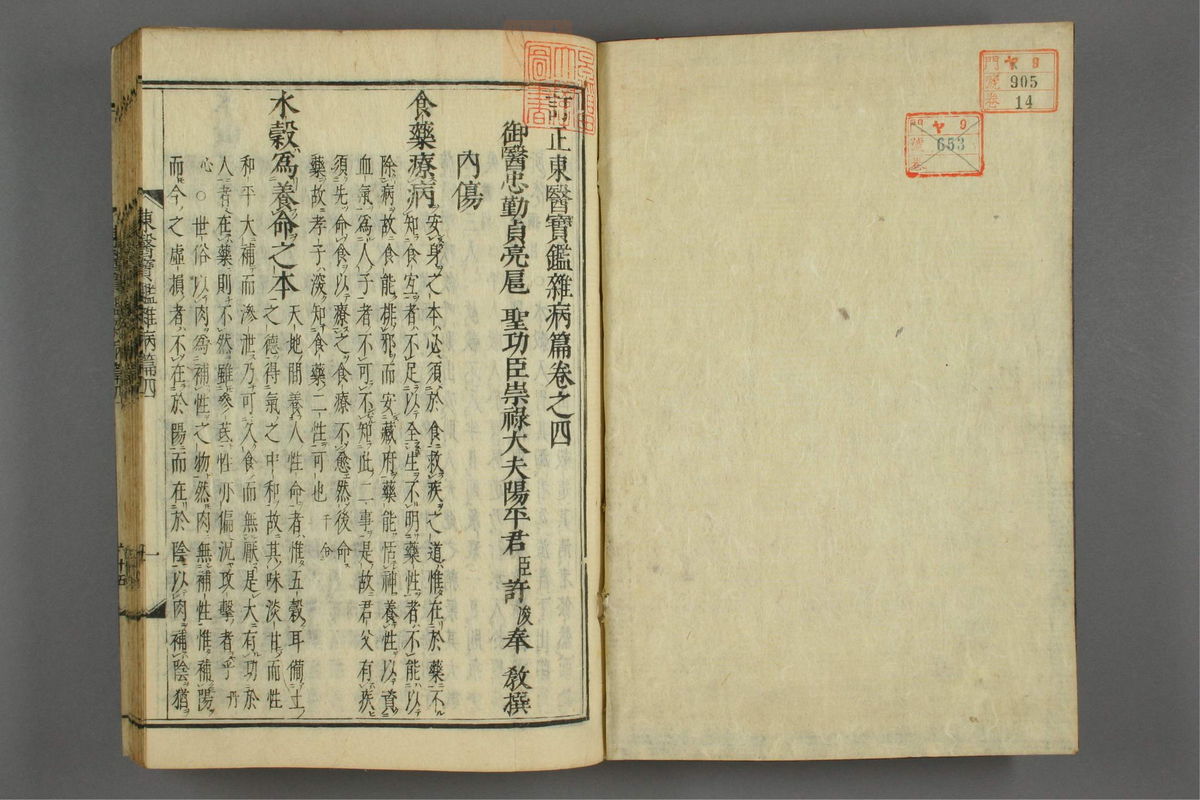 門 ヤ 9
號 905
卷 14
ヤ 9
653
訂正東醫寶鑑雜病篇卷之四
御醫忠勤貞亮扈 聖功臣崇祿大夫陽平君 臣 許 浚 奉 敎撰
內傷
食藥療病
安身之本必須於食救疾之道惟在於藥不
知食宜者不足以全生不明藥性者不能以
除病故食能排邪而安藏府藥能恬神養性以資
血氣爲人子者不可不知此二事是故君父有疾
須先命食以療之食療不愈然後命
藥故孝子深知食藥二性可也 千金
水穀爲養命之本
天地間養人性命者惟五穀耳備土
之德得氣之中和故其味淡甘而性
和平大補而滲泄乃可久食而無厭是大有功於
人者在藥則不然雖參芪性亦偏況攻擊者乎 丹
心 ○世俗以肉爲補性之物然肉無補性惟補陽
而今之虛損者不在於陽而在於陰以肉補陰猶
東醫寶鑑雜病篇四